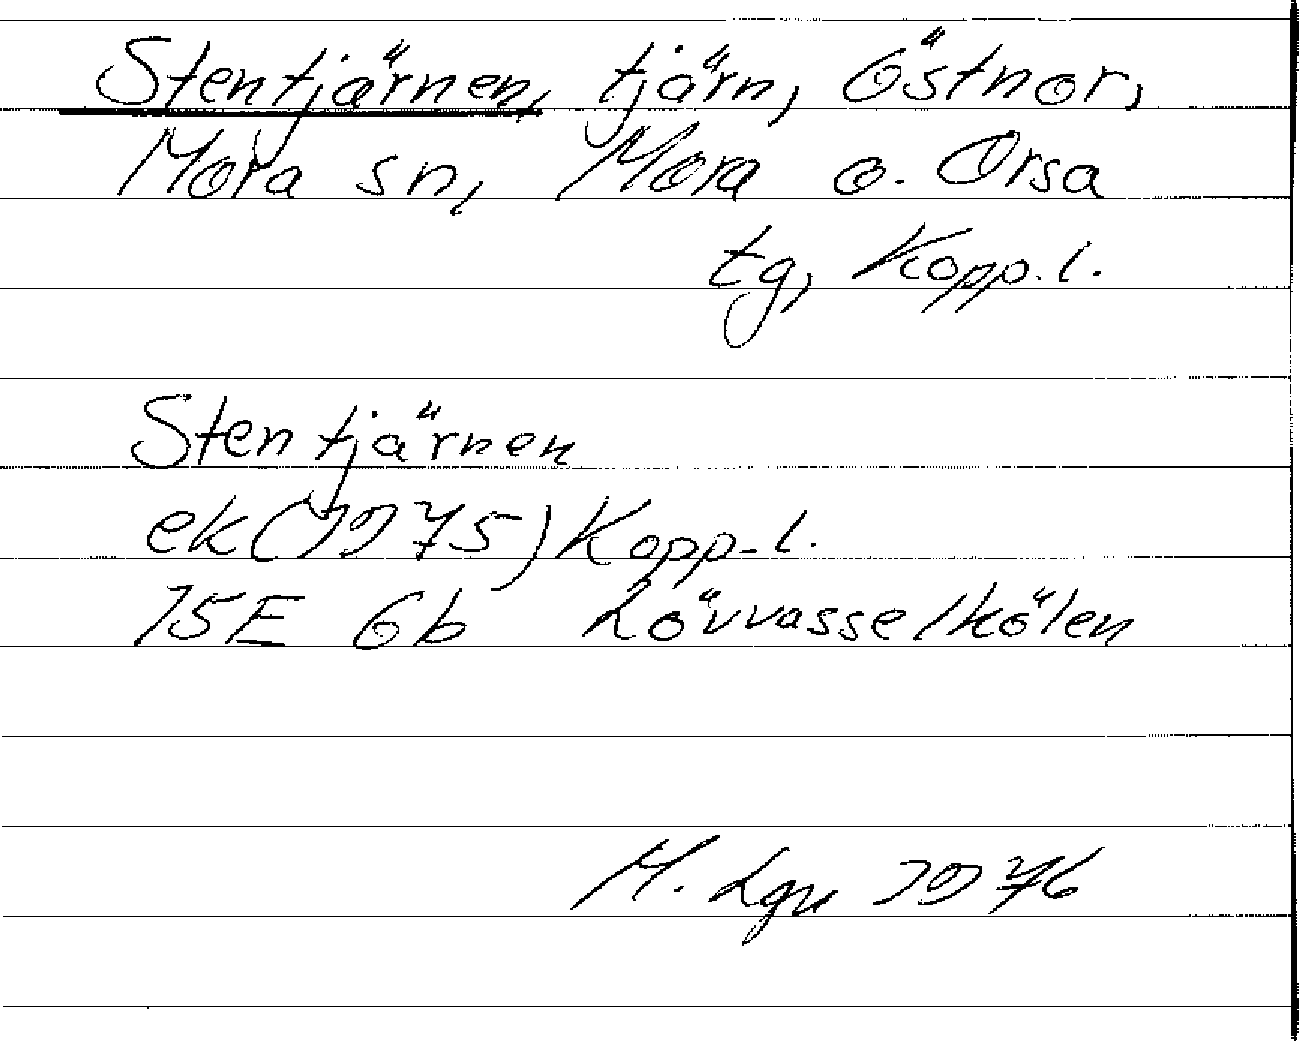 Stentjärnen, tjärn, Östnor,
Mora sn, Mora o. Orsa
tg, Kopp. l.
Stentjärnen
ek (1975) Kopp. l.
15E 6b Lövvasselkölen
M. Lgn 1976